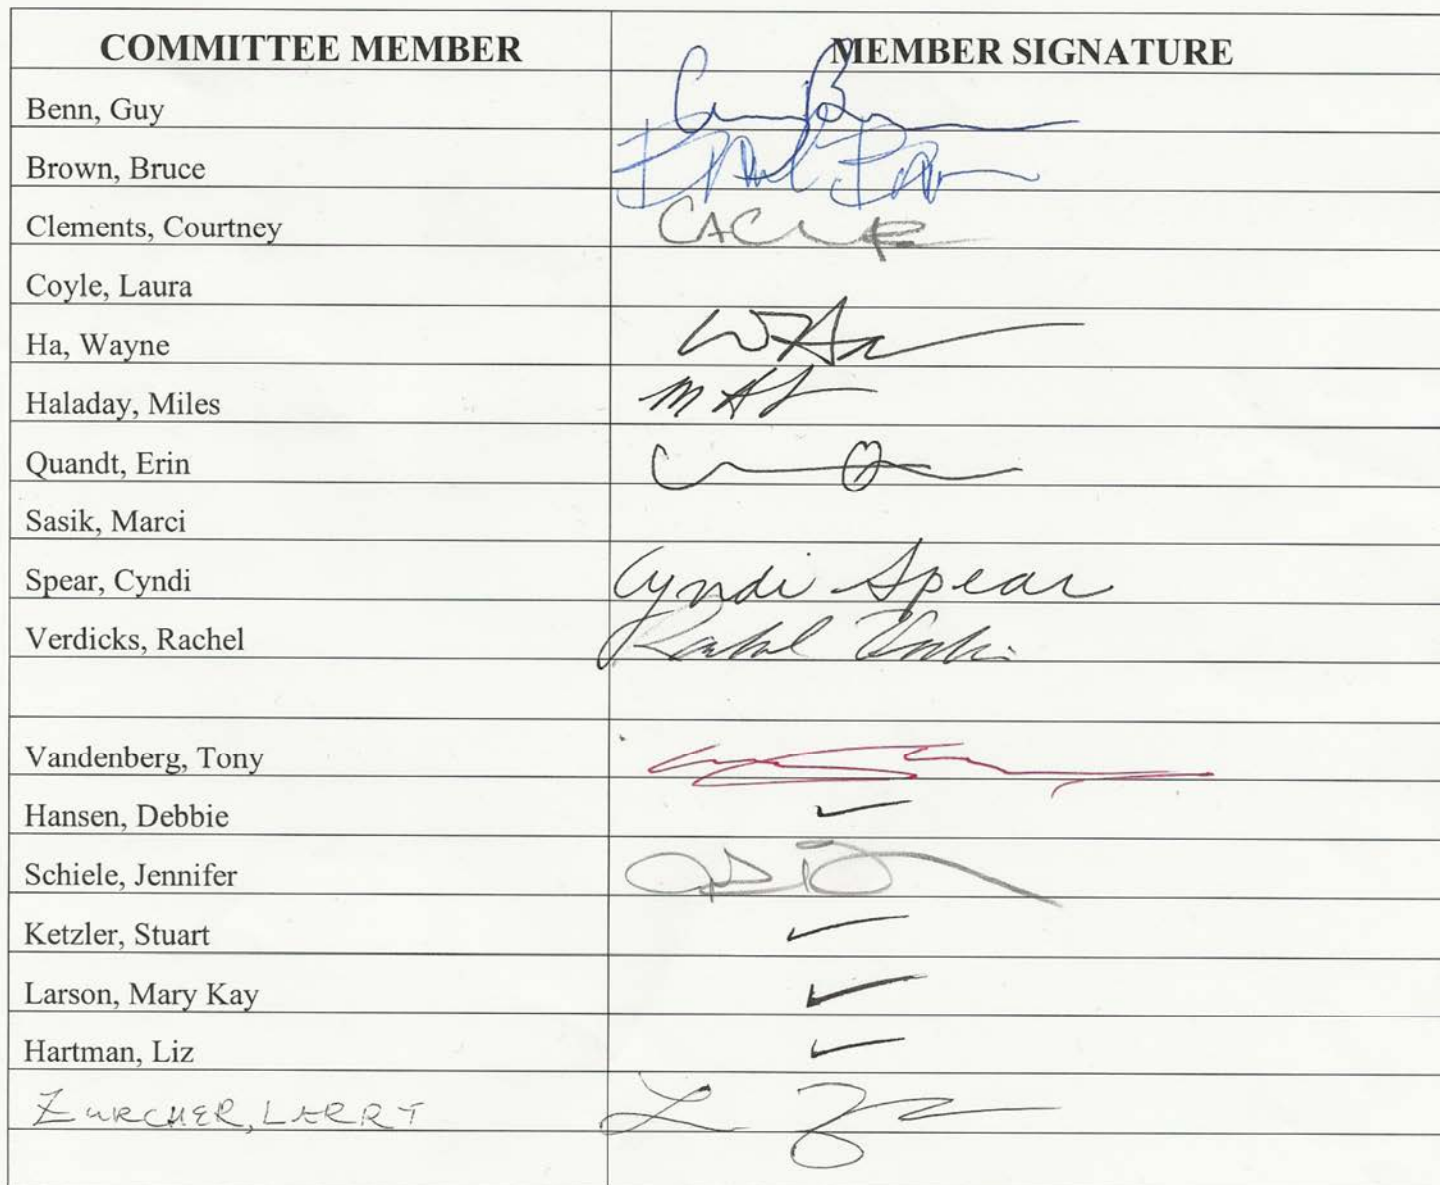 COMMITTEE MEMBER MEMBER SIGNATURE
Benn, Guy
Brown, Bruce
Clements, Courtney
Coyle, Laura
Ha, Wayne
Haladay, Miles
Quandt, Erin
Sasik, Marci
Spear, Cyndi Cyndi Spear
Verdicks, Rachel
Vandenberg, Tony
Hansen, Debbie ✓
Schiele, Jennifer
Ketzler, Stuart ✓
Larson, Mary Kay ✓
Hartman, Liz ✓
ZURCHER, LARRY